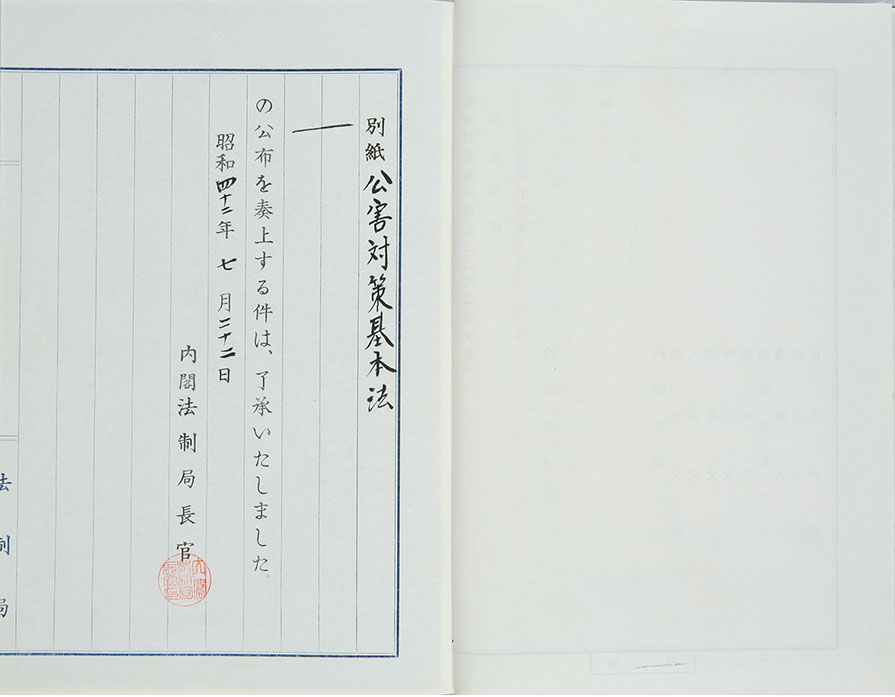 別紙公害対策基本法
の公布を奏上する件は、了承いたしました。
昭和四十二年七月二十二日
内閣法制局長官
法制局